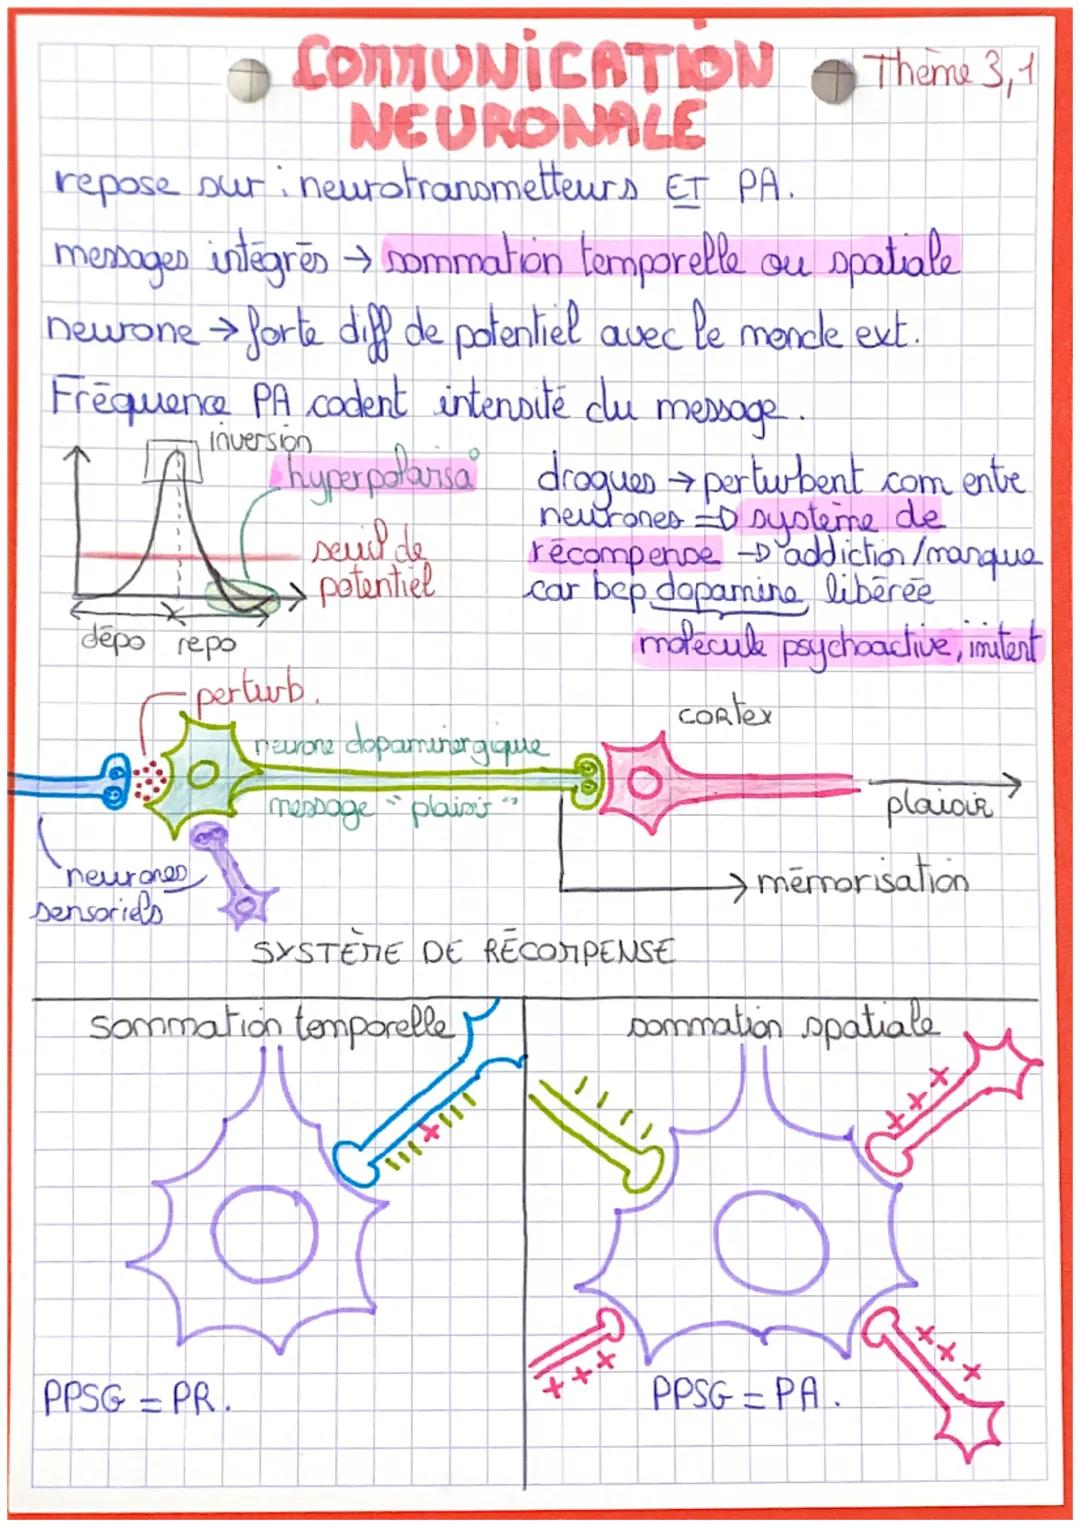 COMMUNICATION
NEURONALE
Thème 3,1
repose sur : neurotransmetteurs ET PA.
messages intégrés → sommation temporelle ou spatiale
neurone → forte diff de potentiel avec le monde ext.
Fréquence PA codent intensité du message.
inversion
hyperpolarisa°
seuil de
potentiel
dépo repo
drogues → perturbent com entre
neurones => système de
récompense -> addiction/manque
car bcp dopamine libérée
molécule psychoactive, imitent
perturb.
neurone dopaminergique
message "plaisir"
cortex
plaisir
mémorisation
neurones
sensoriels
SYSTÈME DE RÉCOMPENSE
sommation temporelle
PPSG = PR.
sommation spatiale
PPSG = PA.